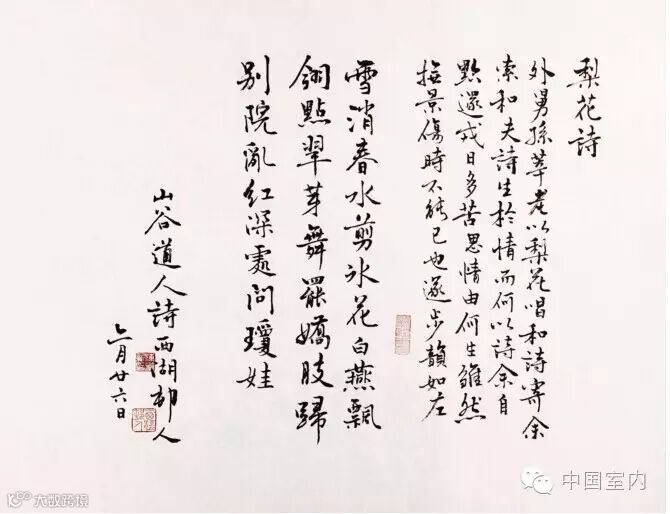 梨花詩
外舅孫莘老以梨花唱和詩寄余
索和夫詩生於情而何以詩余自
黔還戎日多苦思情由何生雖然
撫景傷時不能已也遂步韻如左
雪消春水剪冰花白燕飄
翎點翠芽舞罷嬌肢歸
別院亂紅深處問瓊娃
山谷道人詩西湖邨人
六月廿六日
中国室内
大数跨境